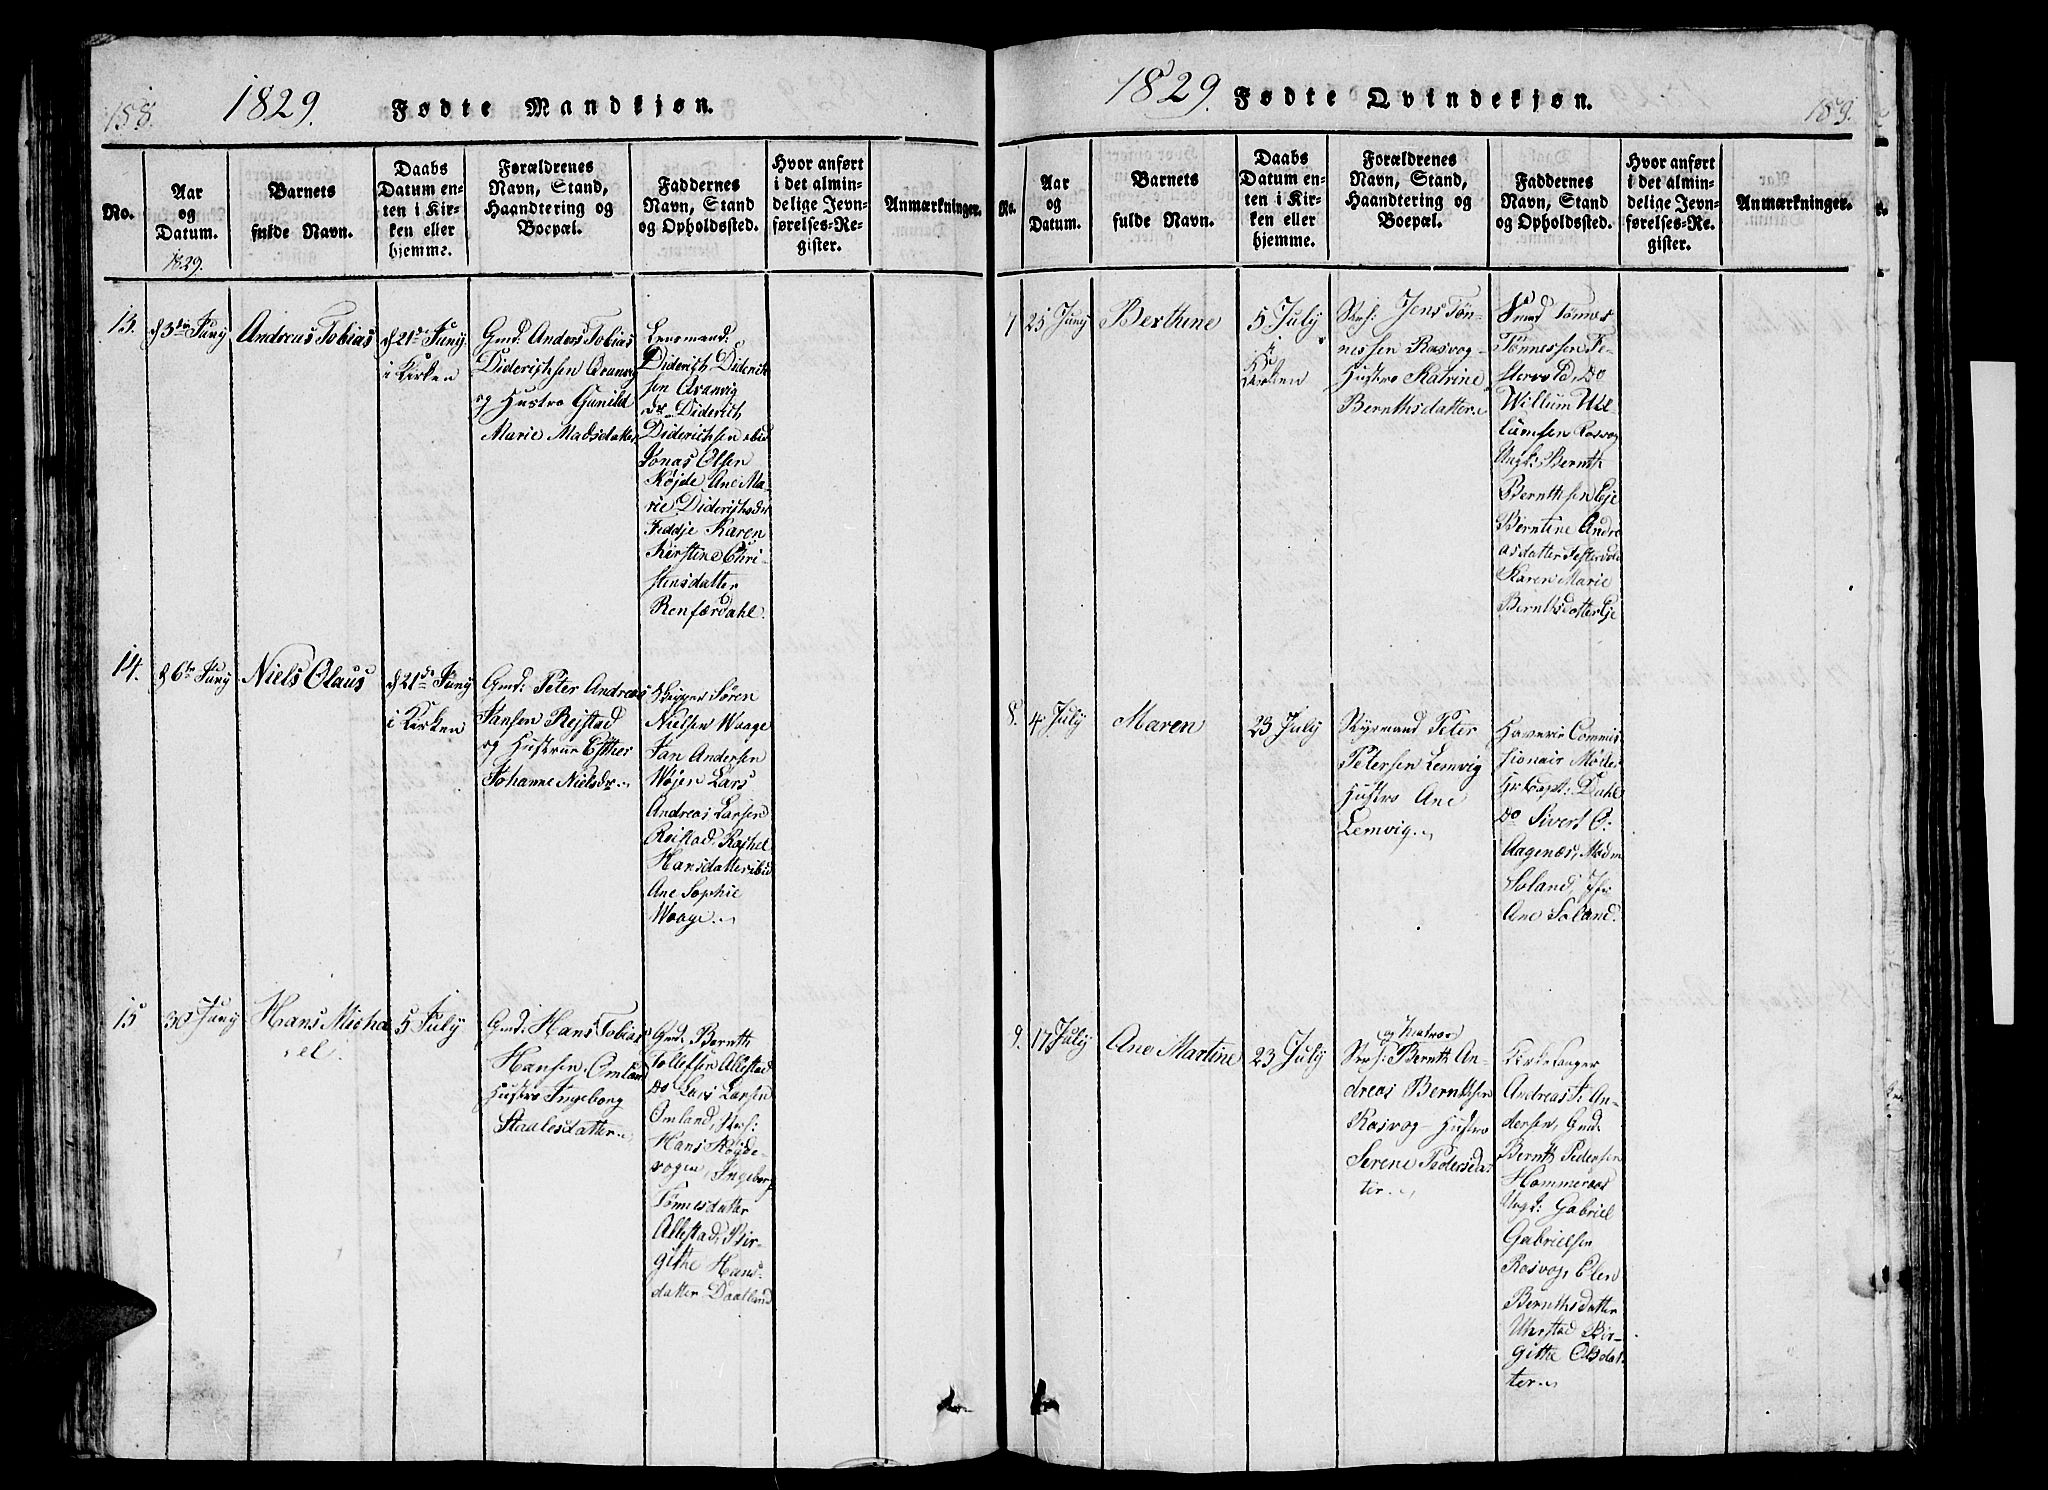 158.
1829. Fødte Mandkjøn.
No.
Aar
og
Datum.
Barnets
fulde Navn.
Daabs
Datum en-
ten i Kir-
ken eller
hjemme.
Forældrenes
Navn, Stand,
Haandtering og
Boepæl.
Faddernes
Navn, Stand
og Opholdssted.
Hvor anført
i det almin-
delige Jevn-
førelses-Re-
gister.
Anmærkninger.
1829.
13.
d 3die Juny
Andreas Tobias
d 21de Juny
i Kirken
Gmd: Anders Tobias
Diderichsen Qvanvig
og Hustro Gunild
Marie Madsdatter
Lensmand:
Diderich Diderich
sen Qvanvig
Diderich
Diderichsen ibid
Jonas Olsen
Røjde Ane Ma-
rie Diderichsdr
Feddje Karen
Kirstine Chri-
stensdatter
Renfærdahl.
14.
d 6te Juny
Niels Olaus
d 21de Juny
i Kirken
Gmd: Peter Andreas
Jansen Rejstad
og Hustrue Esther
Johanne Nielsdr.
Skipper Søren
Nielsen Waage
Jan Andersen
Wøjen Lars
Andreas Larsen
Reistad, Rachel
Hansdatter ibid
Ane Sophie
Waage.
15
30 Juny
Hans Micha
el.
5 July
Gmd: Hans Tobias
Hansen Omland
Hustro Ingeborg
Staalesdatter
Gmd: Bernth
Tollefsen Allestad
Do Lars Larsen
Omland, Strf:
Hans Røjde-
vogen, Ingeborg
Tønnesdatter
Allestad, Bir-
githe Hans-
datter Daaland
1829. Fødte Qvindekjøn.
159.
No.
Aar
og
Datum.
Barnets
fulde Navn.
Daabs
Datum en-
ten i Kir-
ken eller
hjemme.
Forældrenes
Navn, Stand,
Haandtering og
Boepæl.
Faddernes
Navn, Stand
og Opholdssted.
Hvor anført
i det almin-
delige Jevn-
førelses-Re-
gister.
Anmærkninger.
7
25 Juny
Berthine
5 July
i
Kirken
Strf: Jens Tøn-
nessen Rasvog
Hustro Katrine
Bernthsdatter
Smed Tønnes
Tønnessen Fe-
stervold, Do
Willum Wil-
lumsen Rasvog
Ungk: Bernth
Bernthsen Eje
Berntine Andre
asdatter Festervold
Karen Marie
Bernthsdatter Eje
8.
4 July
Maren
23 July
Styrmand Peter
Petersen Lemvig
Hustro Ane
Lemvig.
Haverie Commis-
sionair Møde
Hr Capt: Dahl
Do Sivert O:
Aagenæs, Mdm
Soland, Jfr
Ane Soland.
9.
17 July
Ane Martine
23 July
og Matros
Strf: Bernth An-
dreas Bernthsen
Rasvog Hustro
Serene Pedersdat
ter.
Kirkesanger
Andreas T: An-
dersen, Gmd:
Bernth Pedersen
Hammeraas
Ungk: Gabriel
Gabrielsen
Rasvog, Elen
Bernthsdatter
Uhrstad Bir-
githe Olsdat
ter.